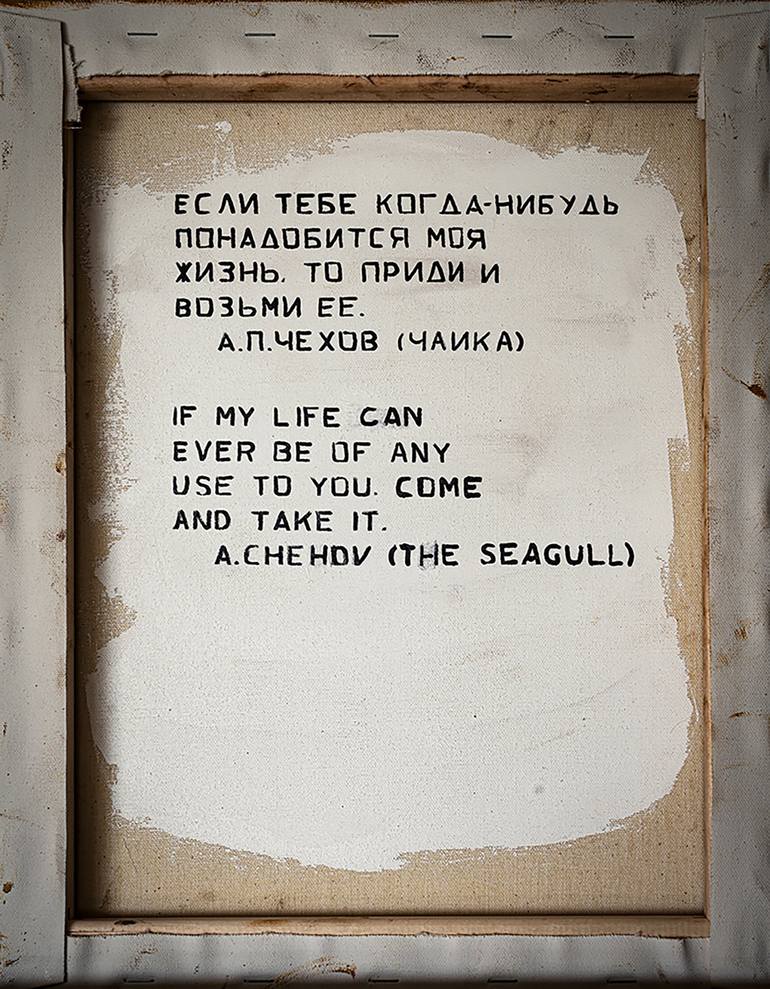 ЕСЛИ ТЕБЕ КОГДА-НИБУДЬ
ПОНАДОБИТСЯ МОЯ
ЖИЗНЬ, ТО ПРИДИ И
ВОЗЬМИ ЕЕ.
А.П.ЧЕХОВ (ЧАИКА)
IF MY LIFE CAN
EVER BE OF ANY
USE TO YOU. COME
AND TAKE IT.
A.CHEHOV (THE SEAGULL)